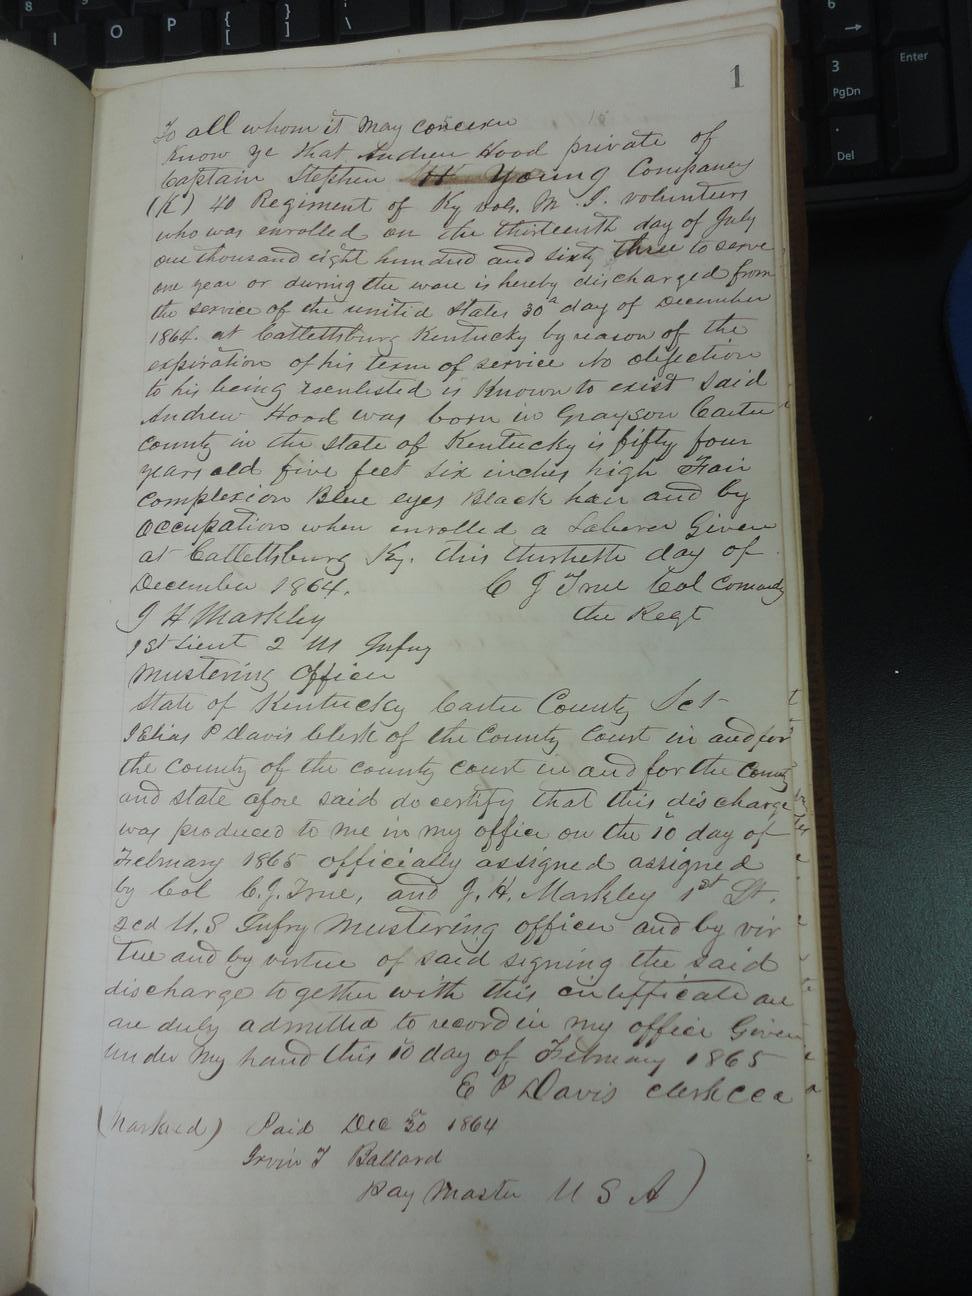 1
To all whom it may concern
Know ye that Andrew Hood private of
Captain Stephen H Young Companey
(K) 40 Regiment of Ky vols. M. I. volunteers
who was enrolled on the thirteenth day of July
one thousand eight hundred and sixty three to serve
one year or during the ware is hereby discharged from
the service of the united States 30 day of December
1864. at Cattettsburg Kentucky by reason of the
expiration of his term of service No objection
to his being reenlisted is Known to exist Said
Andrew Hood was born in Grayson Carter
County in the state of Kentucky is fifty four
years old five feet six inches high Fair
Complexion Blue eyes Black hair and by
Occupation when enrolled a Laberer Given
at Cattettsburg Ky. this thirtieth day of
December 1864. C J True Col Comandg
J H Markley the Regt
1st Lieut 2 US Infry
Mustering Officer
State of Kentucky Carter County Sct
I Elias P Davis Clerk of the County Court in and for
the County of the county court in and for the County
and state afore said do certify that this discharge
was produced to me in my office on the 10 day of
February 1865 officially assigned assigned
by Col C. J. True, and J. H. Markley 1st Lt.
2cd U.S Infry Mustering officer and by vir
tue and by virtue of said signing the said
discharge together with this certifficate are
are duly admitted to record in my office Given
under my hand this 10 day of February 1865
E P Davis clerk CCC
(Marked) Paid Dec 30 1864
Irvin T Ballard
Pay Master U S A)
8
9
I
O
P
{
[
}
]
|
\
6
→
3
PgDn
.
Del
Enter